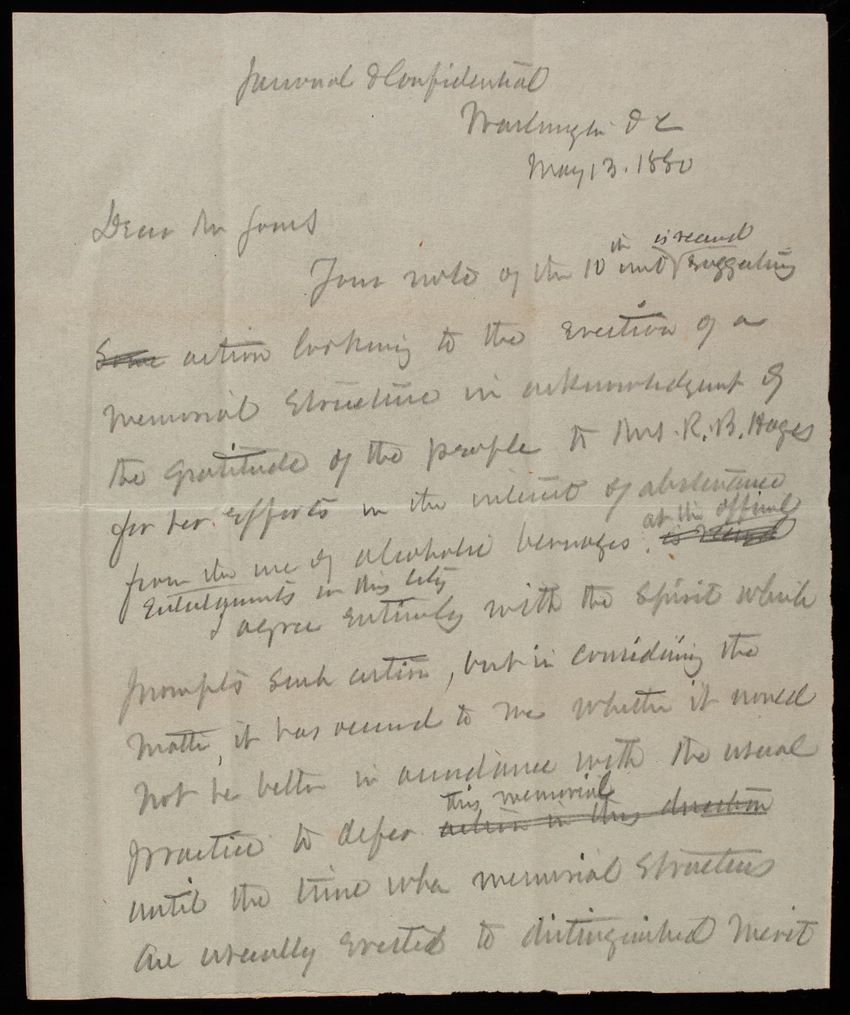 Personal & Confidential
Washington D C
May 13. 1880
Dear Mr Jones
is received
Your note of the 10th inst suggesting
Some action looking to the Erection of a
Memorial Structure in acknowledgment of
the gratitude of the people to Mrs. R. B. Hayes
for her Efforts in the interest of abstinence
at the official
from the use of alcoholic beverages. is recd
Entertainments in this City
I agree Entirely with the Spirit which
prompts such action, but in considering the
matter, it has occured to me whether it would
not be better in accordance with the usual
this memorial
practice to defer action in this direction
until the time when memorial Structures
are usually Erected to distinguished Merit